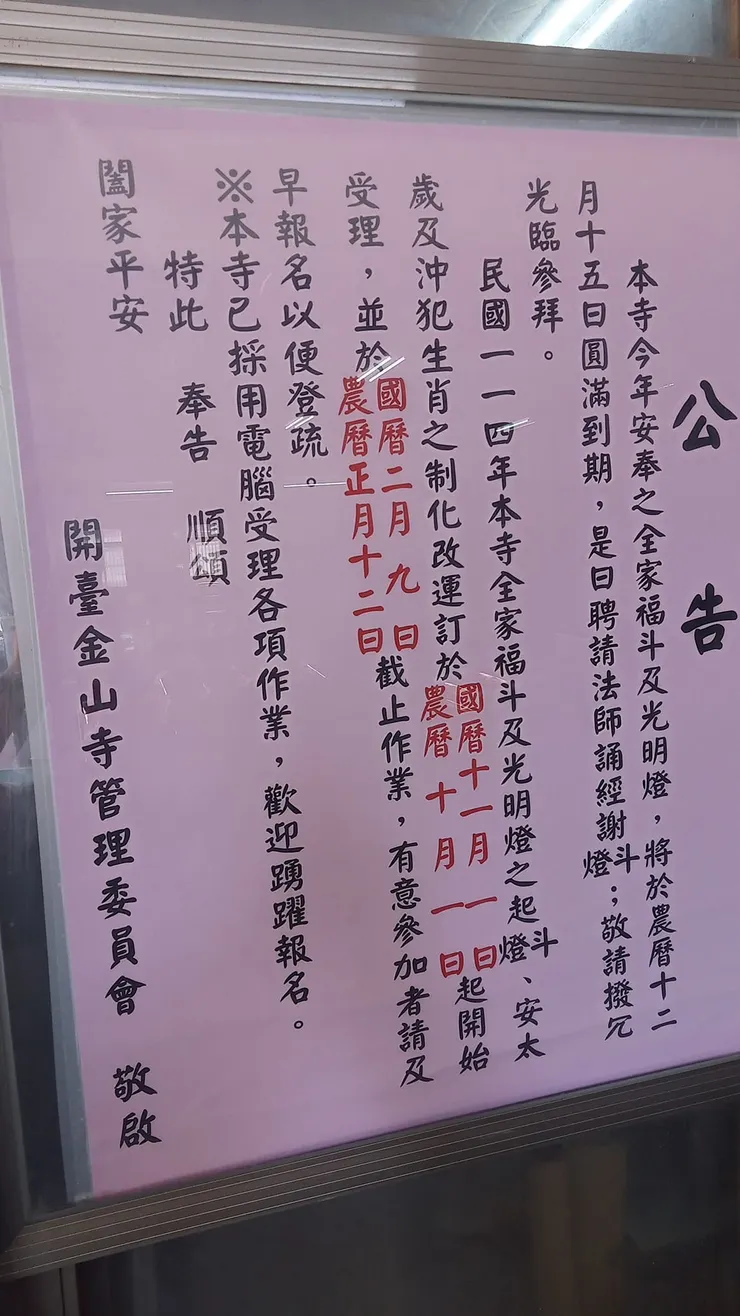 公告
本寺今年安奉之全家福斗及光明燈，將於農曆十二
月十五日圓滿到期，是日聘請法師誦經謝斗燈；敬請撥冗
光臨參拜。
民國一一四年本寺全家福斗及光明燈之起斗燈、安太
歲及沖犯生肖之制化改運訂於國曆十一月一日農曆十月一日起開始
受理，並於國曆二月九日農曆正月十二日截止作業，有意參加者請及
早報名以便登疏。
※本寺已採用電腦受理各項作業，歡迎踴躍報名。
特此 奉告 順頌
闔家平安
開臺金山寺管理委員會 敬啟